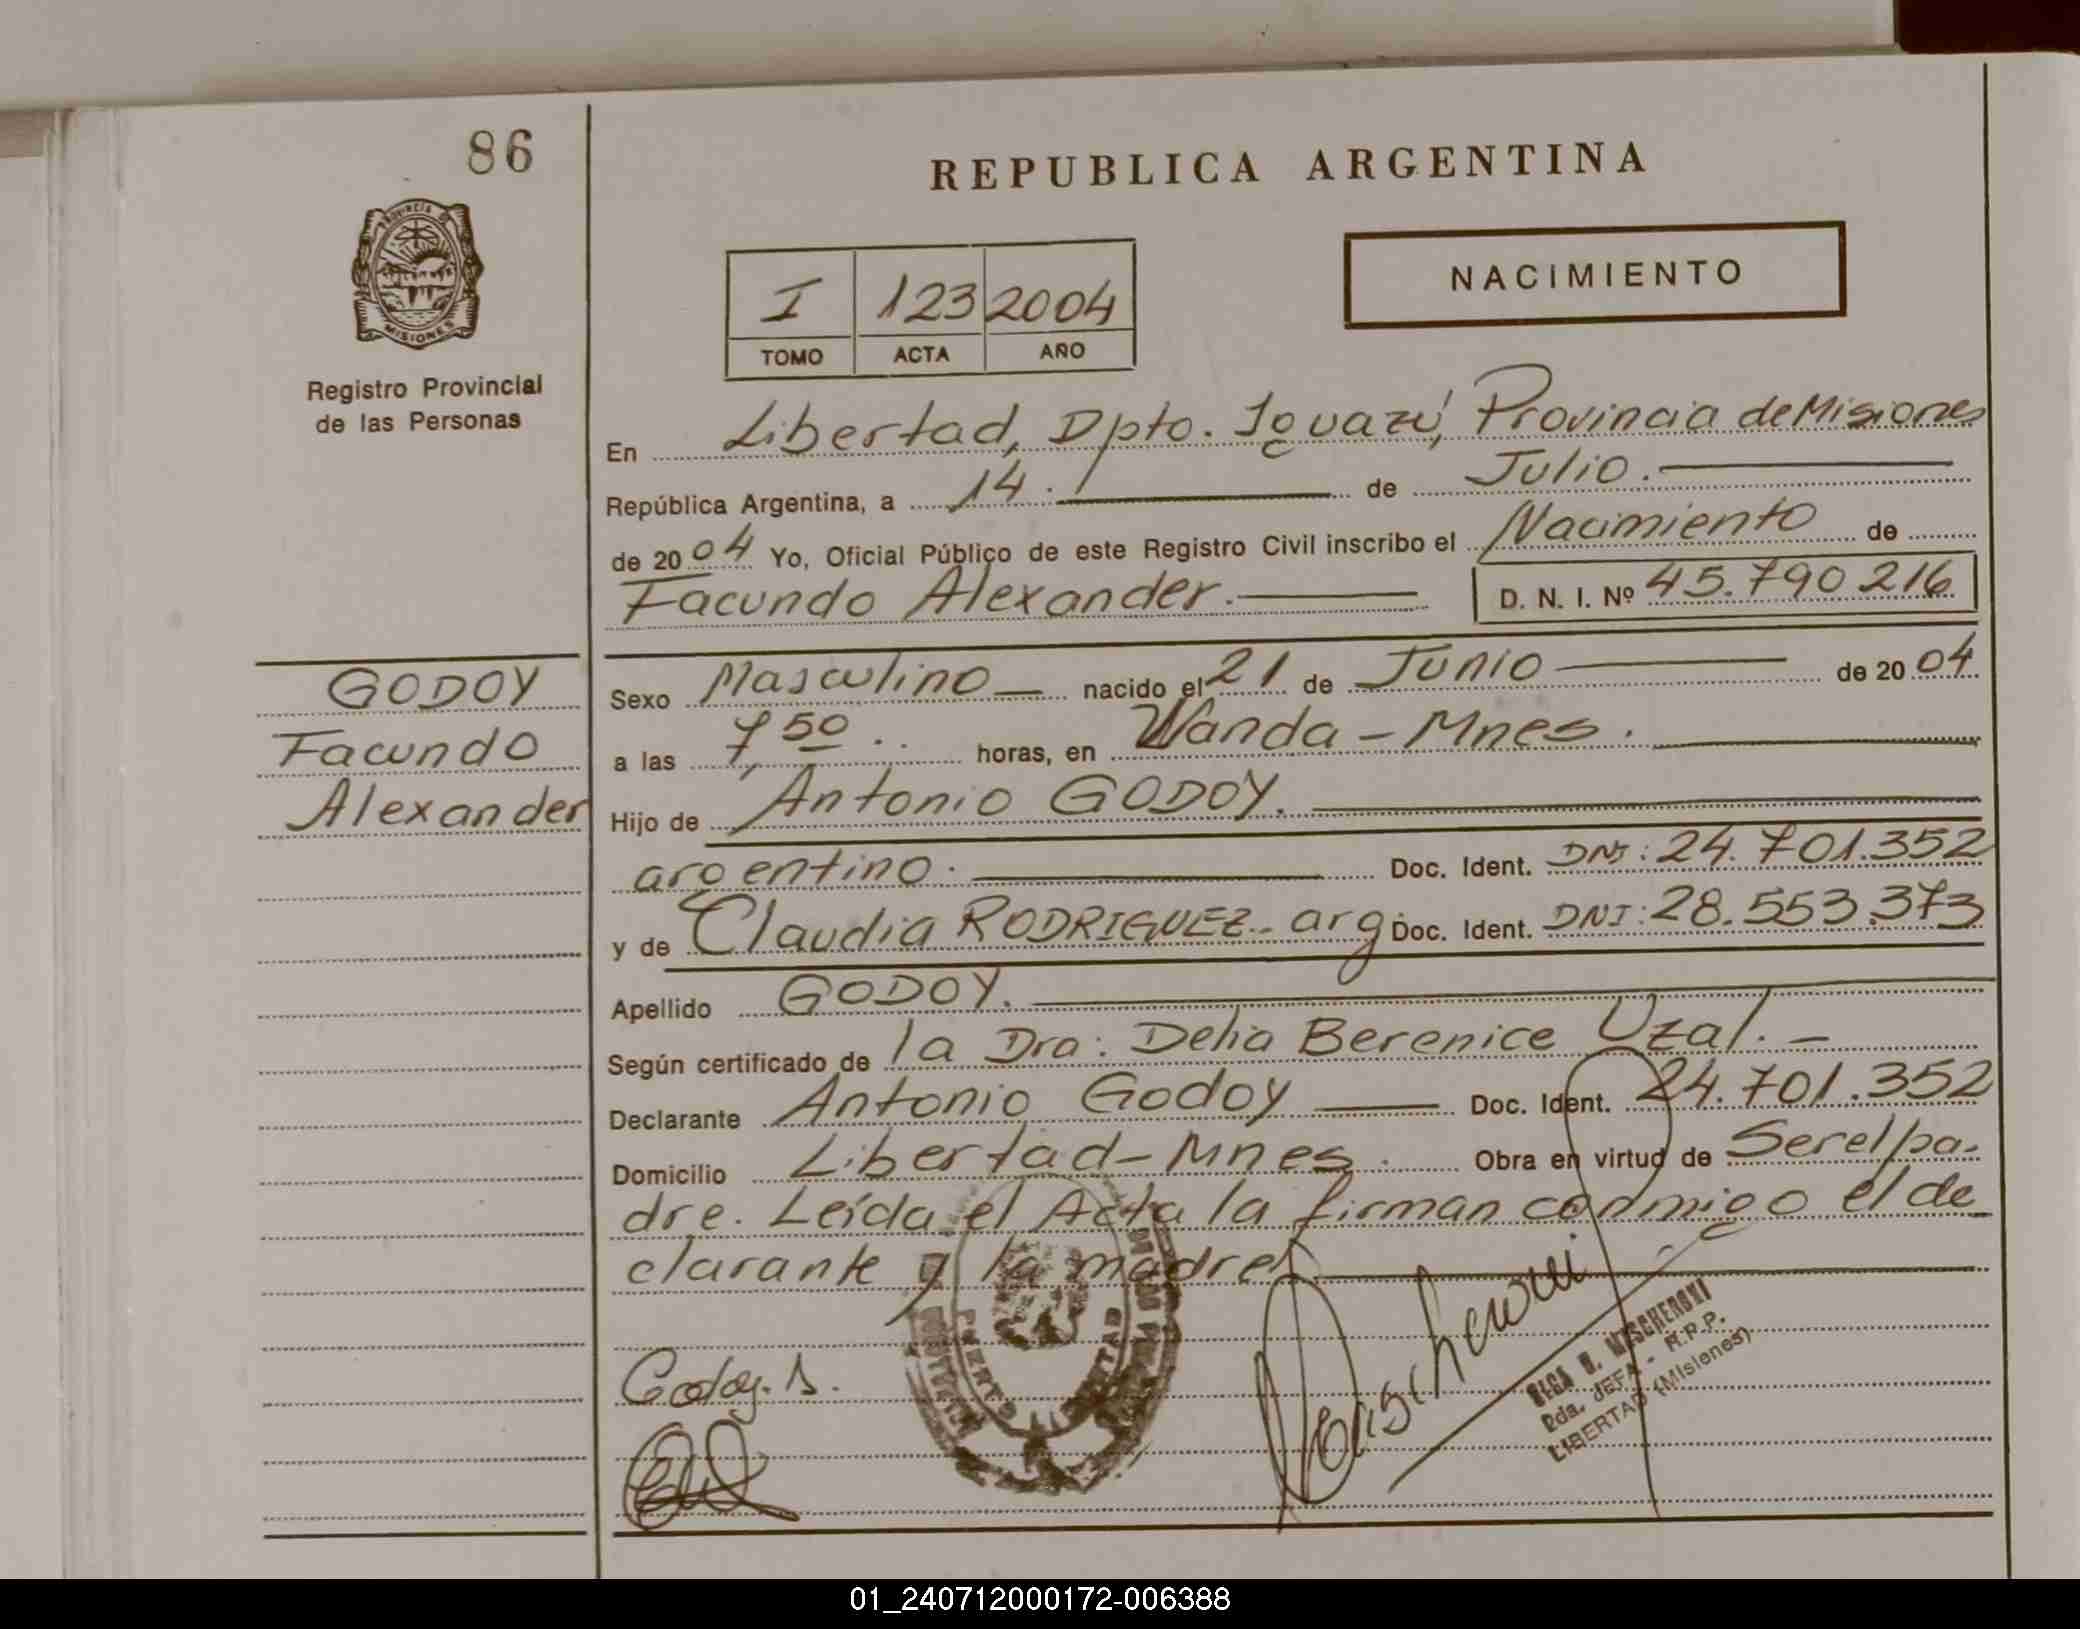 86
REPUBLICA ARGENTINA
PROVINCIA DE
MISIONES
NACIMIENTO
I 123 2004
TOMO ACTA AÑO
Registro Provincial
de las Personas
En Libertad, Dpto. Iguazú, Provincia de Misiones
República Argentina, a 14. de Julio.
de 2004 Yo, Oficial Público de este Registro Civil inscribo el Nacimiento de
Facundo Alexander. D. N. I. Nº 45.790216
GODOY
Facundo
Alexander
Sexo Masculino nacido el 21 de Junio de 2004
a las 7,50. horas, en Wanda - Mnes.
Hijo de Antonio GODOY.
argentino. Doc. Ident. DNI: 24.701.352
y de Claudia RODRIGUEZ - arg Doc. Ident. DNI: 28.553.373
Apellido GODOY.
Según certificado de la Dra: Delia Berenice Uzal. -
Declarante Antonio Godoy Doc. Ident. 24.701.352
Domicilio Libertad - Mnes. Obra en virtud de Ser el pa-
dre. Leída el Acta la firman conmigo el de
clarante y la madre
Godoy. A.
OLGA B.
Eda. JEFA - R.R.P.
LIBERTAD (Misiones)
01_240712000172-006388